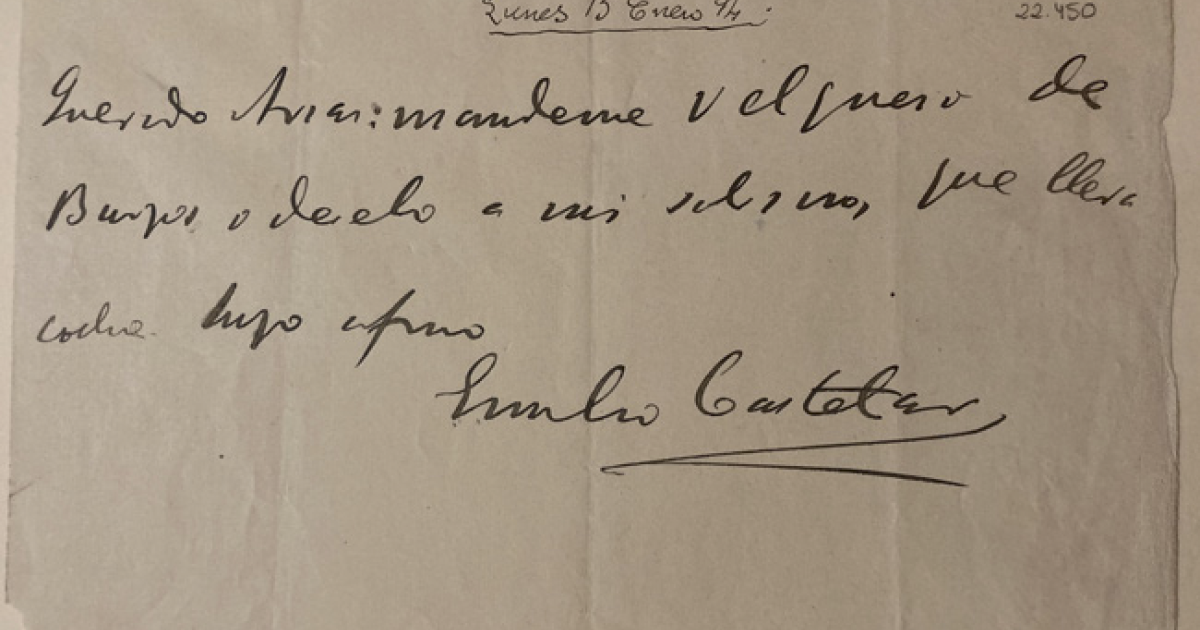 Lunes 15 Enero 94.
22.450
Querido Arias: mandeme V el queso de
Burgos o deselo a mi sobrino, que lleva
coche. Suyo afmo
Emilio Castelar